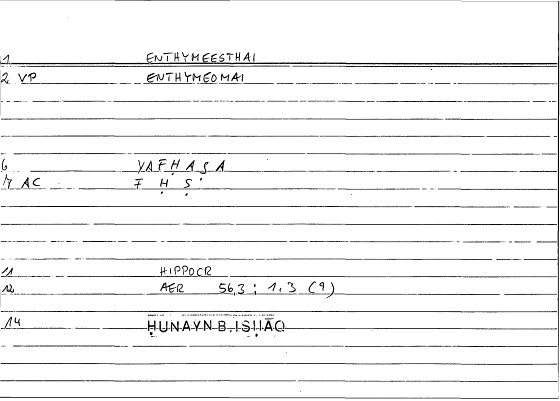 1 ENTHYMEESTHAI
2 VP ENTHYMEOMAI
6 YAFḤAṢA
7 AC F Ḥ Ṣ
11 HIPPOCR
12 AER 56,3 ; 1.3 (9)
14 ḤUNAYN B. ISḤĀQ